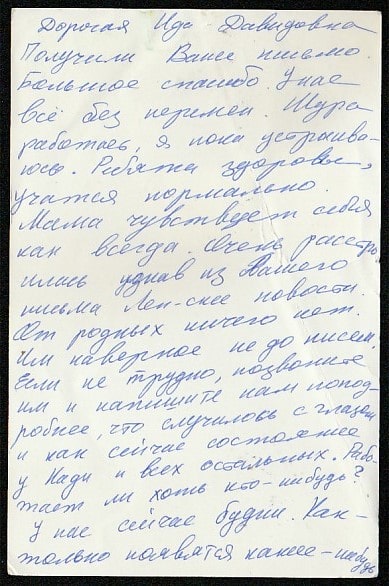 Дорогая Ида Давидовна
Получили Ваше письмо.
Большое спасибо. У нас
всё без перемен. Шура
работает, я пока устраива-
юсь. Ребята здоровы,
учатся нормально.
Мама чувствует себя
как всегда. Очень расстро
илась узнав из Вашего
письма Лен-ские новости.
От родных ничего нет.
Им наверное не до писем.
Если не трудно, позвоните
им и напишите нам попод
робнее, что случилось с глазом
и как сейчас состояние
у Нади и всех остальных. Рабо-
тает ли хоть кто-нибудь?
У нас сейчас будни. Как-
только появятся какие-нибудь